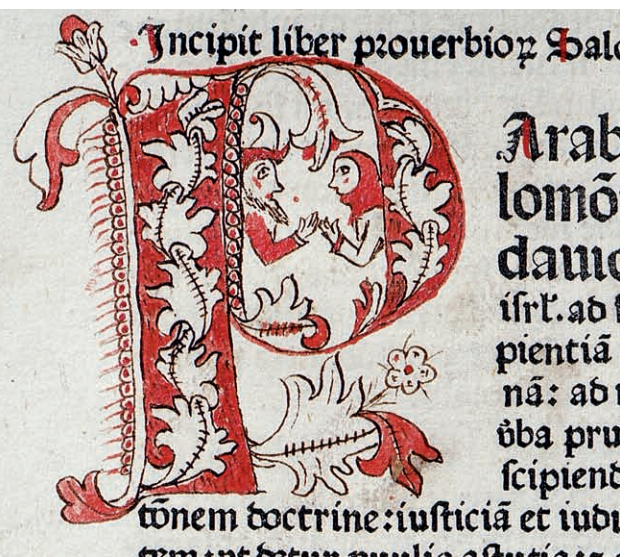 Incipit liber prouerbioꝝ Salo
Parab
lomō
dauid
isrl̕. ad s
pientiā
nā: ad
v̄ba pru
scipiend
tōnem doctrine: iusticiā et iudi